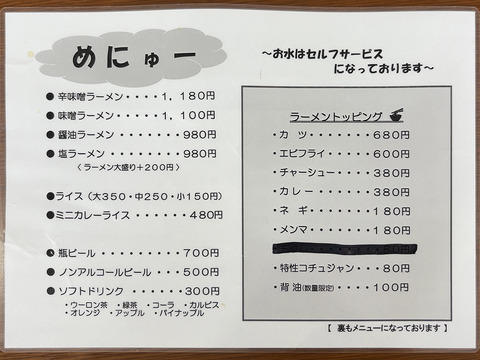 めにゅー
～お水はセルフサービス
になっております～
● 辛味噌ラーメン・・・・1，180円
● 味噌ラーメン・・・・・1，100円
● 醤油ラーメン・・・・・・・980円
● 塩ラーメン・・・・・・・・980円
〈 ラーメン大盛り＋200円 〉
●ライス（大350・中250・小150円）
●ミニカレーライス・・・・・・480円
● 瓶ビール・・・・・・・・・700円
● ノンアルコールビール・・・500円
● ソフトドリンク・・・・・・300円
・ウーロン茶 ・緑茶 ・コーラ ・カルピス
・オレンジ ・アップル ・パイナップル
ラーメントッピング
・カ ツ・・・・・・・680円
・エビフライ・・・・・600円
・チャーシュー・・・・380円
・カレー・・・・・・・380円
・ネ ギ・・・・・・・180円
・メンマ・・・・・・・180円
・特性コチュジャン・・・80円
・背 油(数量限定)・・・・100円
【 裏もメニューになっております 】